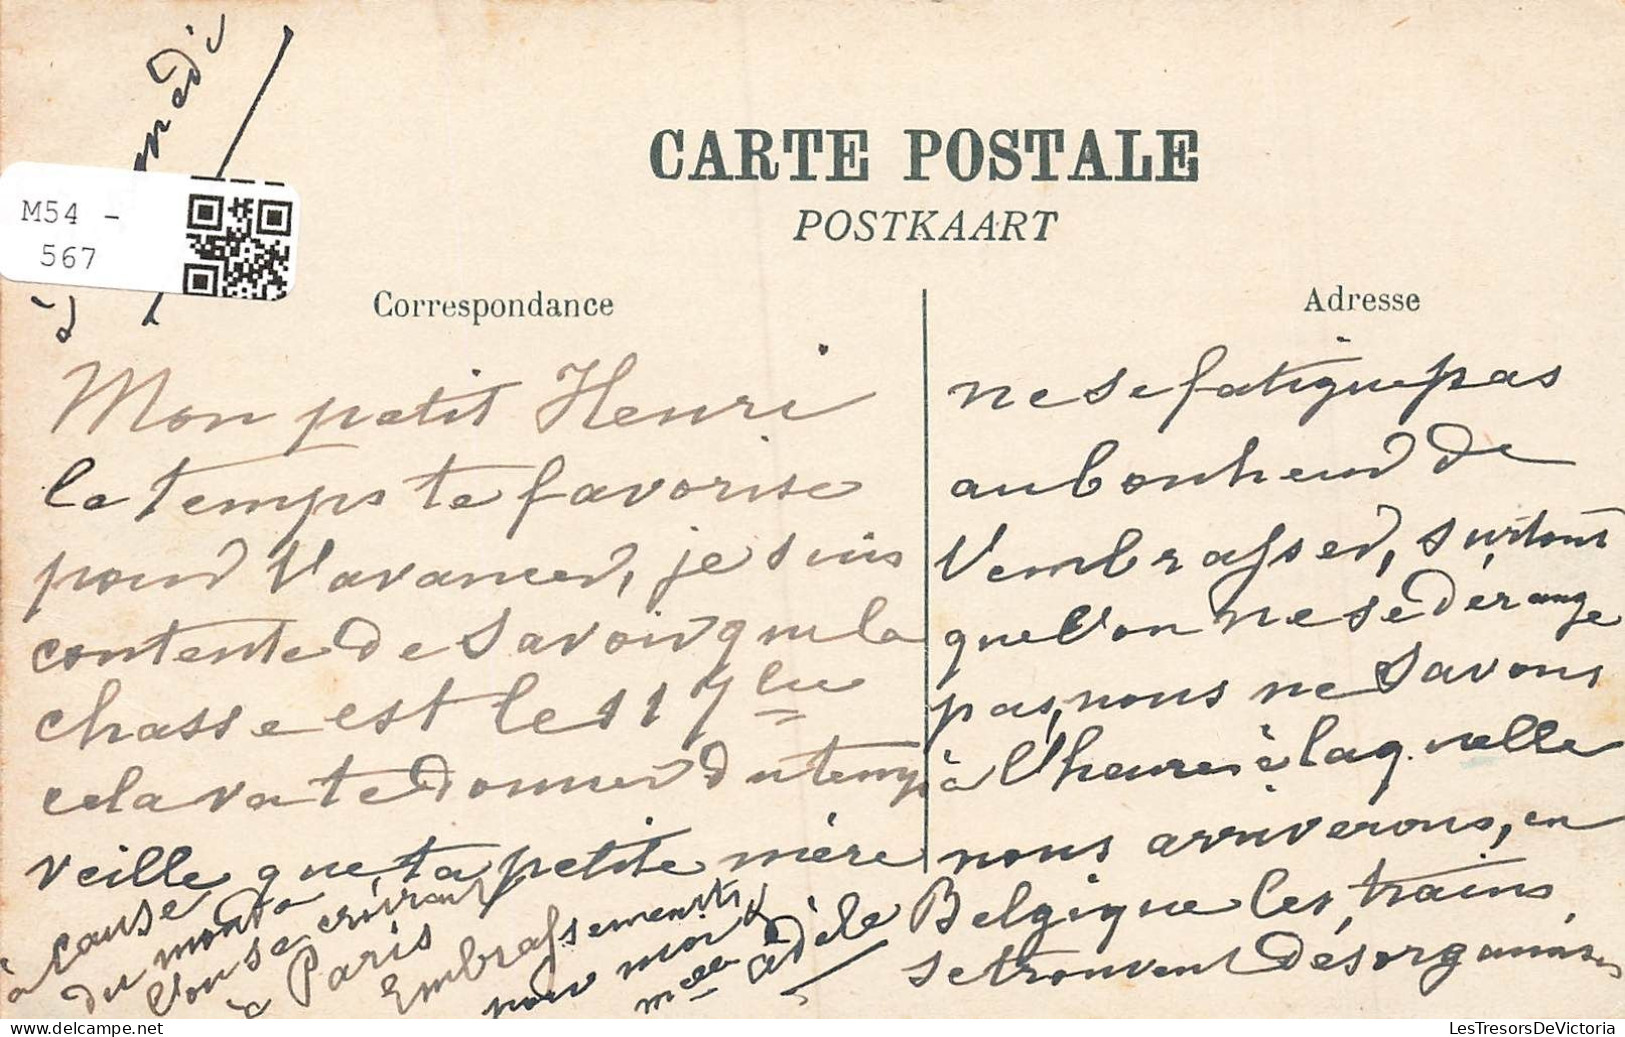 medi
M54 -
567
CARTE POSTALE
POSTKAART
Correspondance
Adresse
Mon petit Henri
le temps te favorise
pour t'avancer, je suis
contente de savoir que la
chasse est le 11 7bre
cela va te donner du temps
veille que ta petite mère
ne se fatigue pas
au bonheur de
t'embrasser, surtout
que l'on ne se dérange
pas, nous ne savons
à l'heure à laquelle
nous arriverons, en
Belgique les trains
se trouvent désorganisés
à cause
du monde
l'on s'écrirait
à Paris
Embrassements
pour
melle adèle
LesTresorsDeVictoria.com